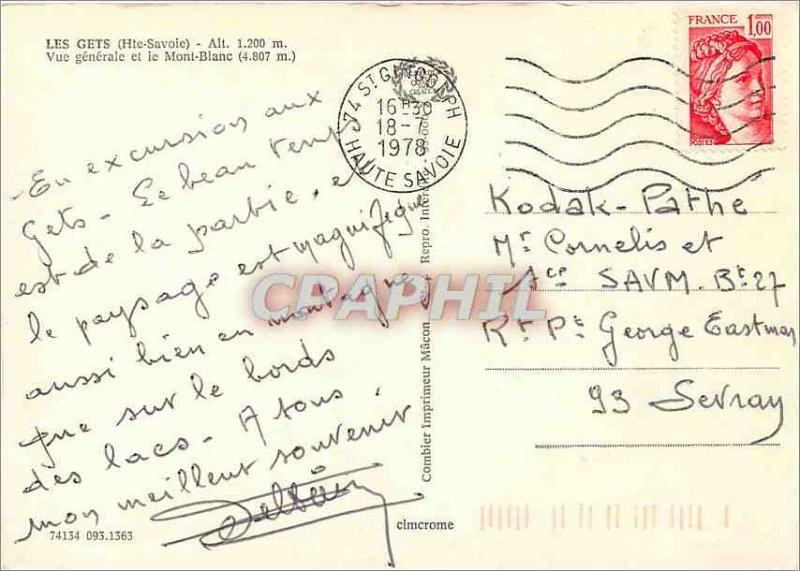 LES GETS (Hte-Savoie) - Alt. 1.200 m.
Vue générale et le Mont-Blanc (4.807 m.)
En excursion aux
Gets - Le beau temps
est de la partie, et
le paysage est magnifique
aussi bien en montagne
que sur le bords
des lacs - A tous
mon meilleur souvenir
74134 093.1363
cimcrome
Combier Imprimeur Mâcon
Repro.
74 ST
16H30
18-7
1978
HAUTE SAVOIE
FRANCE 1,00
POSTES
Kodak-Pathe
Mr Cornelis et
SAVM. Bt 27
Rt Pt George Eastman
93 Sevray
CPAPHIL